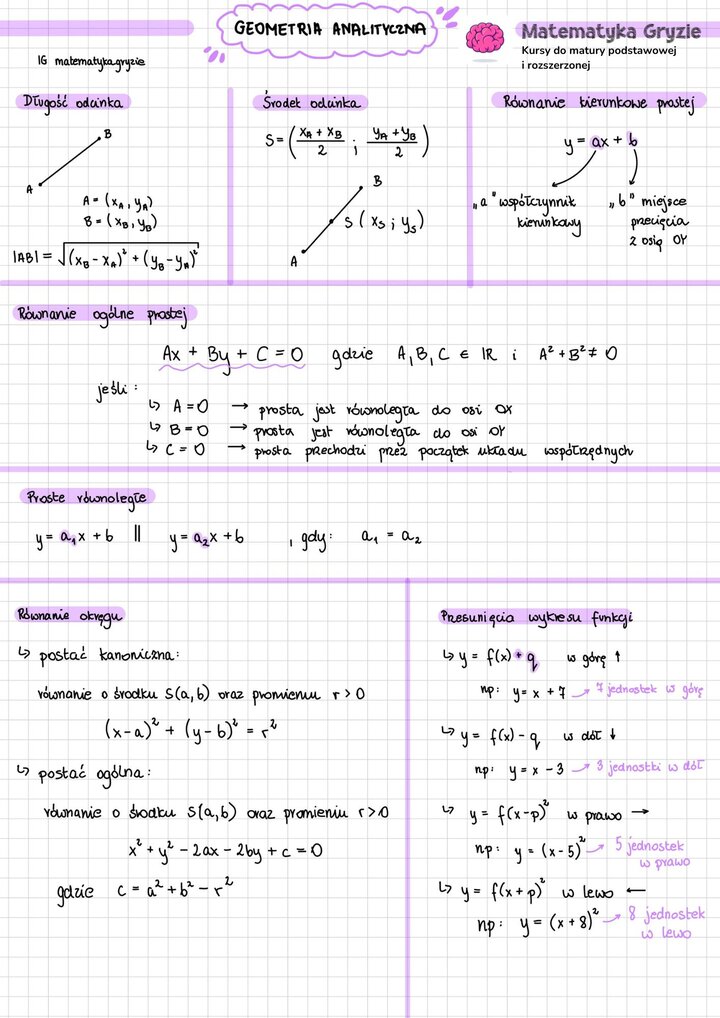 GEOMETRIA ANALITYCZNA
Matematyka Gryzie
Kursy do matury podstawowej
i rozszerzonej
IG matematykagryzie
Długość odcinka
B
A
A = (x_A, y_A)
B = (x_B, y_B)
|AB| = √(x_B - x_A)² + (y_B - y_A)²
Środek odcinka
S = (x_A + x_B / 2 ; y_A + y_B / 2)
B
S (x_S ; y_S)
A
Równanie kierunkowe prostej
y = ax + b
„a" współczynnik kierunkowy
„b" miejsce przecięcia z osią OY
Równanie ogólne prostej
Ax + By + C = 0 gdzie A, B, C ∈ IR i A² + B² ≠ 0
jeśli :
↳ A = 0 → prosta jest równoległa do osi OX
↳ B = 0 → prosta jest równoległa do osi OY
↳ C = 0 → prosta przechodzi przez początek układu współrzędnych
Proste równoległe
y = a₁x + b || y = a₂x + b , gdy: a₁ = a₂
Równanie okręgu
↳ postać kanoniczna:
równanie o środku S(a,b) oraz promieniu r > 0
(x-a)² + (y-b)² = r²
↳ postać ogólna:
równanie o środku S(a,b) oraz promieniu r > 0
x² + y² - 2ax - 2by + c = 0
gdzie c = a² + b² - r²
Przesunięcia wykresu funkcji
↳ y = f(x) + q w górę ↑
np: y = x + 7 → 7 jednostek w górę
↳ y = f(x) - q w dół ↓
np: y = x - 3 → 3 jednostki w dół
↳ y = f(x-p)² w prawo →
np: y = (x-5)² → 5 jednostek
w prawo
↳ y = f(x+p)² w lewo ←
np: y = (x+8)² → 8 jednostek
w lewo